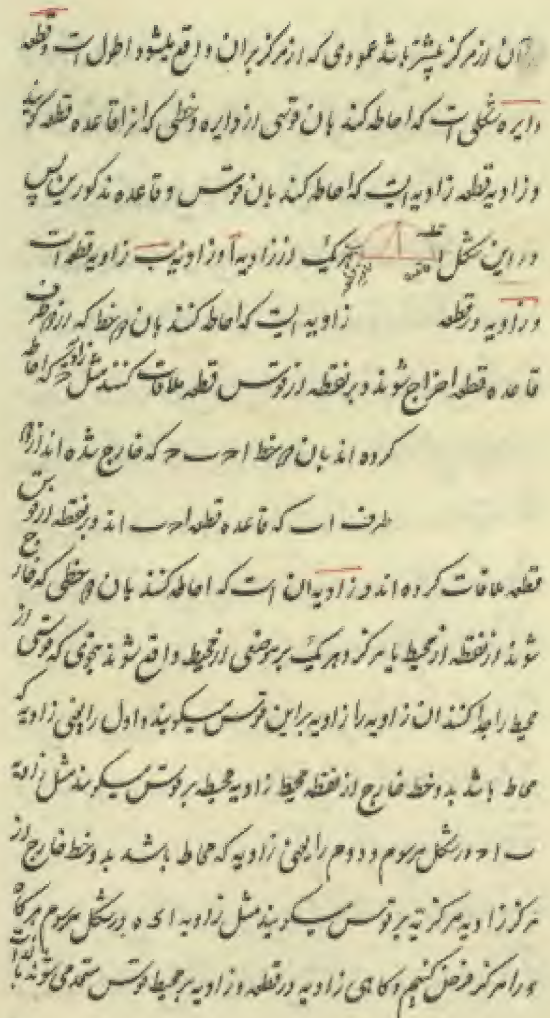 آن از مرکز بیشتر باشد عمودی که از مرکز بران واقع میشود اطول است و قطعه
دایره شکلی است که احاطه کند بان قوسی از دایره و خطی که انرا قاعده قطعه کویند
و زاویه قطعه زاویه ایست که احاطه کند بان قوس و قاعده مذکورین پس
در این شکل هر یک از زاویه ا و زاویه ب زاویه قطعه است
و زاویه در قطعه زاویه ایست که احاطه کنند بان دو خط که از دو طرف
قاعده قطعه اخراج شوند و بر نقطه از قوس قطعه ملاقات کنند مثل زاویه ح که احاطه
کرده اند بان دو خط ا ح ب ح که خارج شده اند از دو
طرف ا ب که قاعده قطعه ا ح ب اند و بر نقطه از قوس
قطعه ملاقات کرده اند و زاویه ان است که احاطه کنند بان دو خطی که خارج
شوند از نقطه از محیط یا مرکز و هر یک بر موضعی از محیط واقع شوند بنحوی که قوسی از
محیط را جدا کنند ان زاویه را زاویه بر این قوس میکویند و اول را یعنی زاویه که
محاط باشد بدو خط خارج از نقطه محیط زاویه محیطه بر قوس میکویند مثل زاویه
ب ا ح در شکل مرسوم و دوم را یعنی زاویه که محاط باشد بدو خط خارج از
مرکز زاویه مرکزیه بر قوس میکویند مثل زاویه ا ی ه در شکل مرسوم هر کاه
ء را مرکز فرض کنیم و کاهی زاویه در قطعه و زاویه بر محیط قوس متحد می شوند بالذات